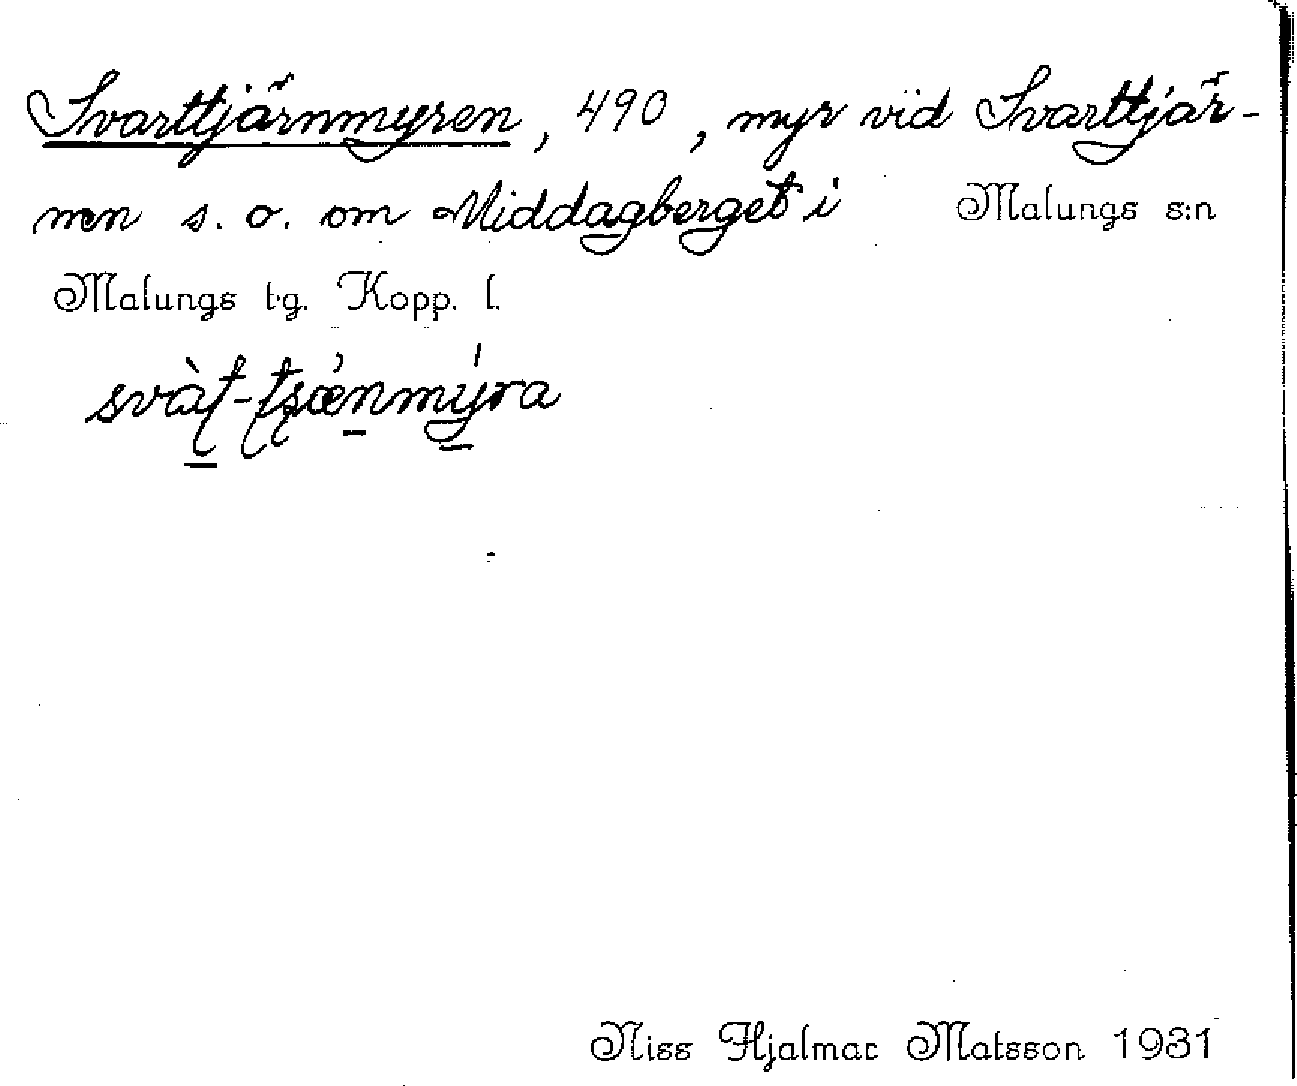 Svarttjärnmyren, 490, myr vid Svarttjär-
nen s. o. om Middagberget i Malungs s:n
Malungs tg. Kopp. l.
Niss Hjalmar Matsson 1931